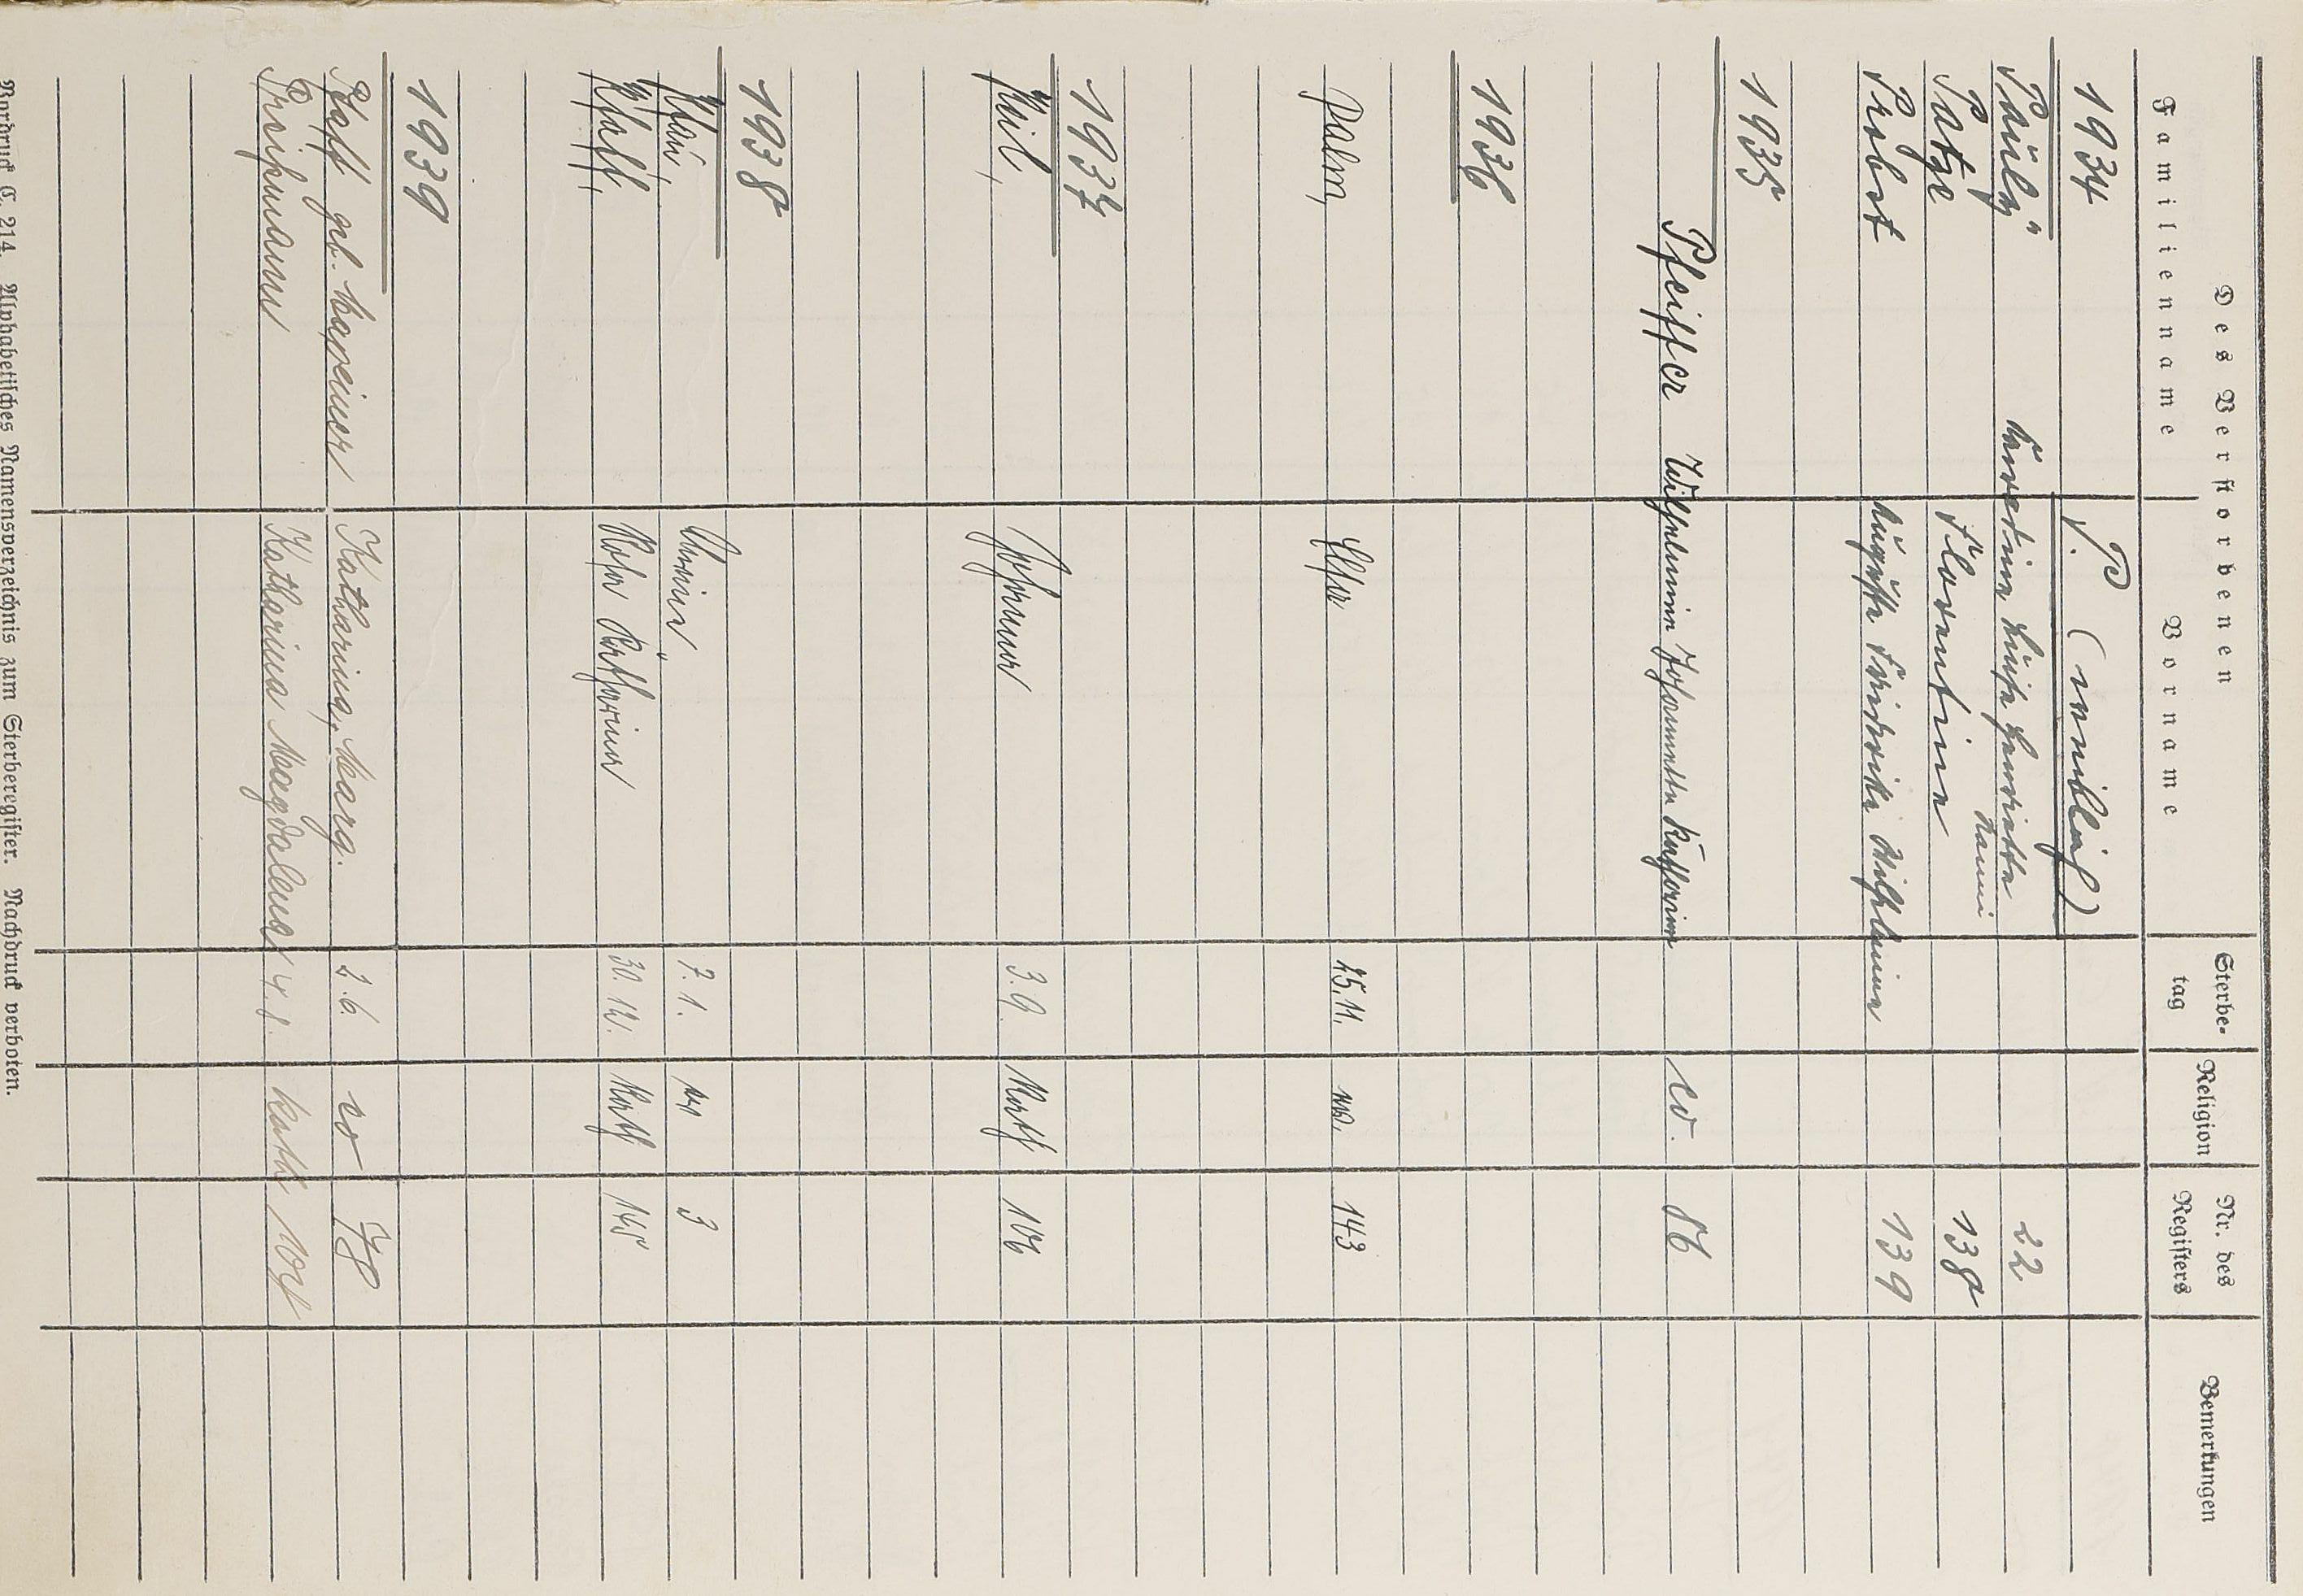 Des Verstorbenen Sterbe- Religion Nr. des Bemerkungen
Familienname Vorname tag Registers
1934 P. (weiblich)
Pauly Luise Henriette 22
Fanni
Patze Florentine 138
Probst Auguste Friederike Wilhelmine 139
1935
Pfeiffer Wilhelmine Johannette Katharina ev. 86
1936
Palm, Elise 25.11. ev. 143
1937
Peil, Johanna 3.9. Kath 106
1938
7.1. ev 3
Pfaff, Rosa Katharina 30.12. Kath 145
1939
Pfaff geb. Katharina, Marg. 2.6. ev 78
Katharina Magdalena kath 104
Vordruck C. 214. Alphabetisches Namensverzeichnis zum Sterberegister. Nachdruck verboten.